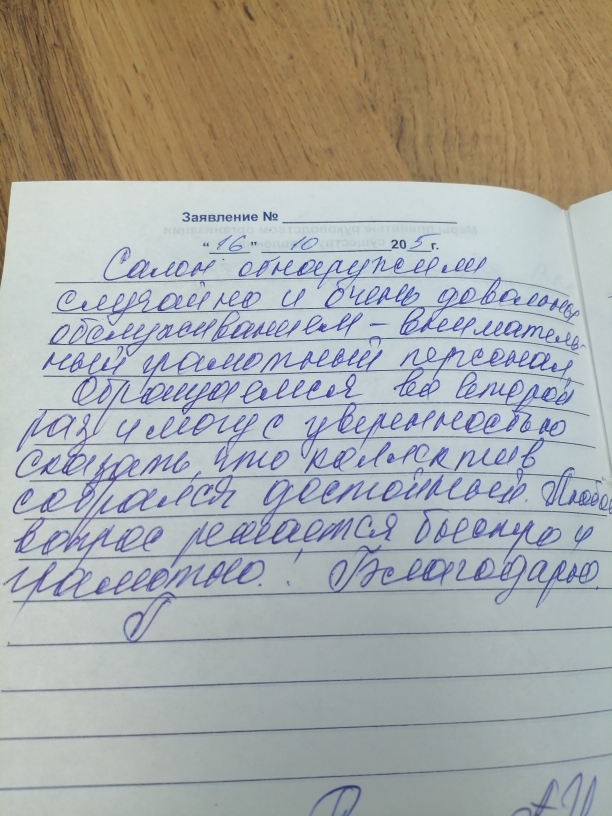 Заявление №
"16" 10 205 г.
Салон обнаружили
случайно и очень довольны
обслуживанием – вниматель-
ный грамотный персонал
Обращаемся во второй
раз и могу с уверенностью
сказать, что коллектив
собрался достойный. Любой
вопрос решается быстро и
грамотно! Благодарю.